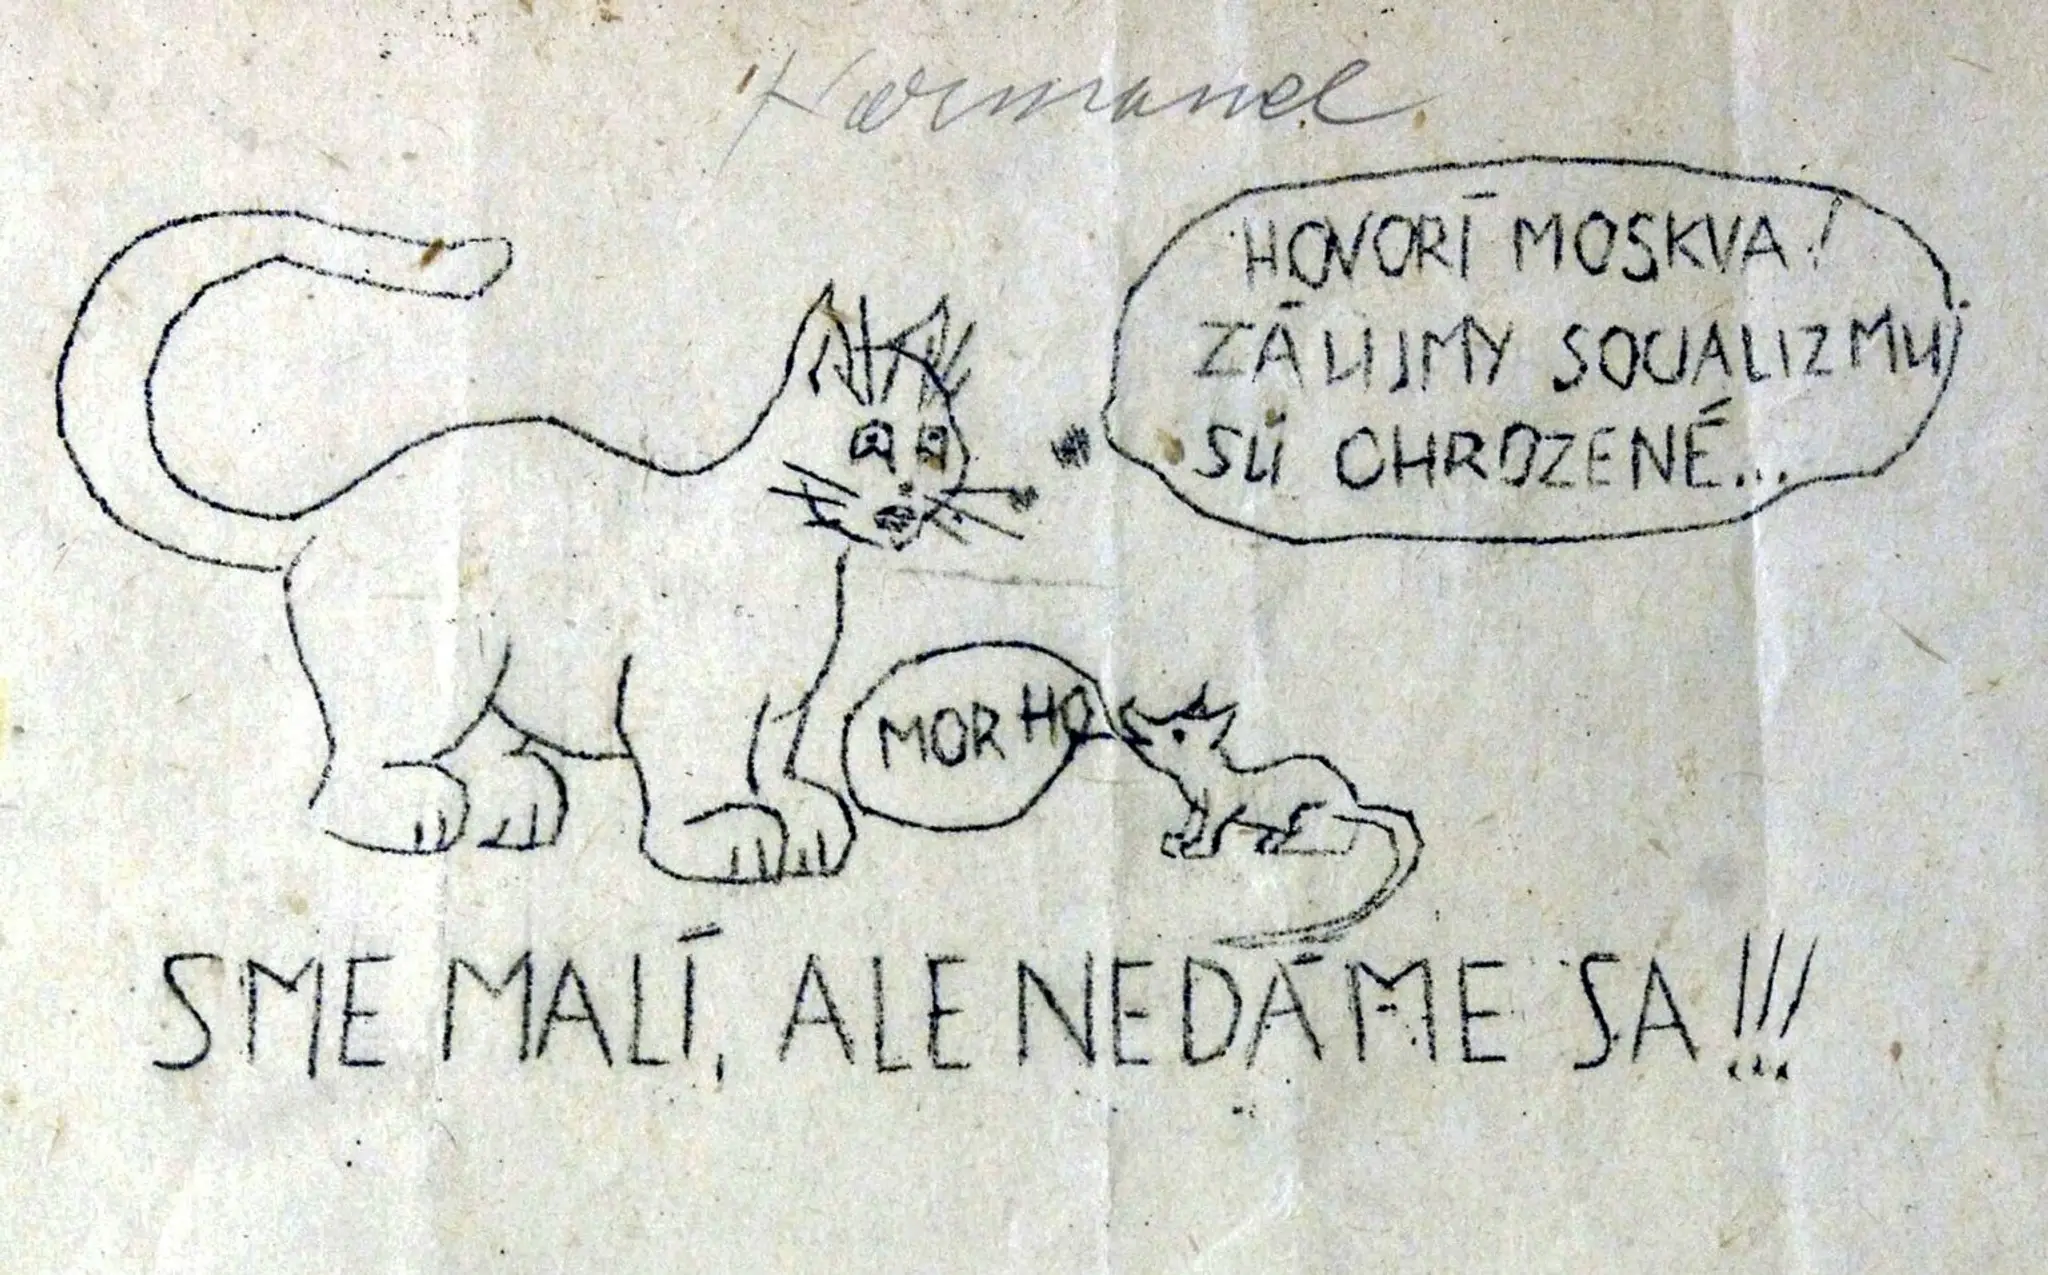 HOVORÍ MOSKVA!
ZÁUJMY SOCIALIZMU
SÚ CHRDZENÉ...
MOR HO
SME MALÍ, ALE NEDÁME SA!!!